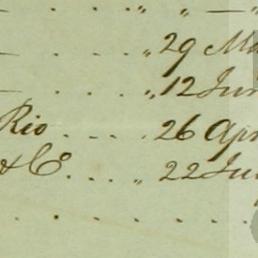 " "
" 29 Ma
" 12 Jun
Rio .... 26 Apr
& Cº .... " 22 Ju